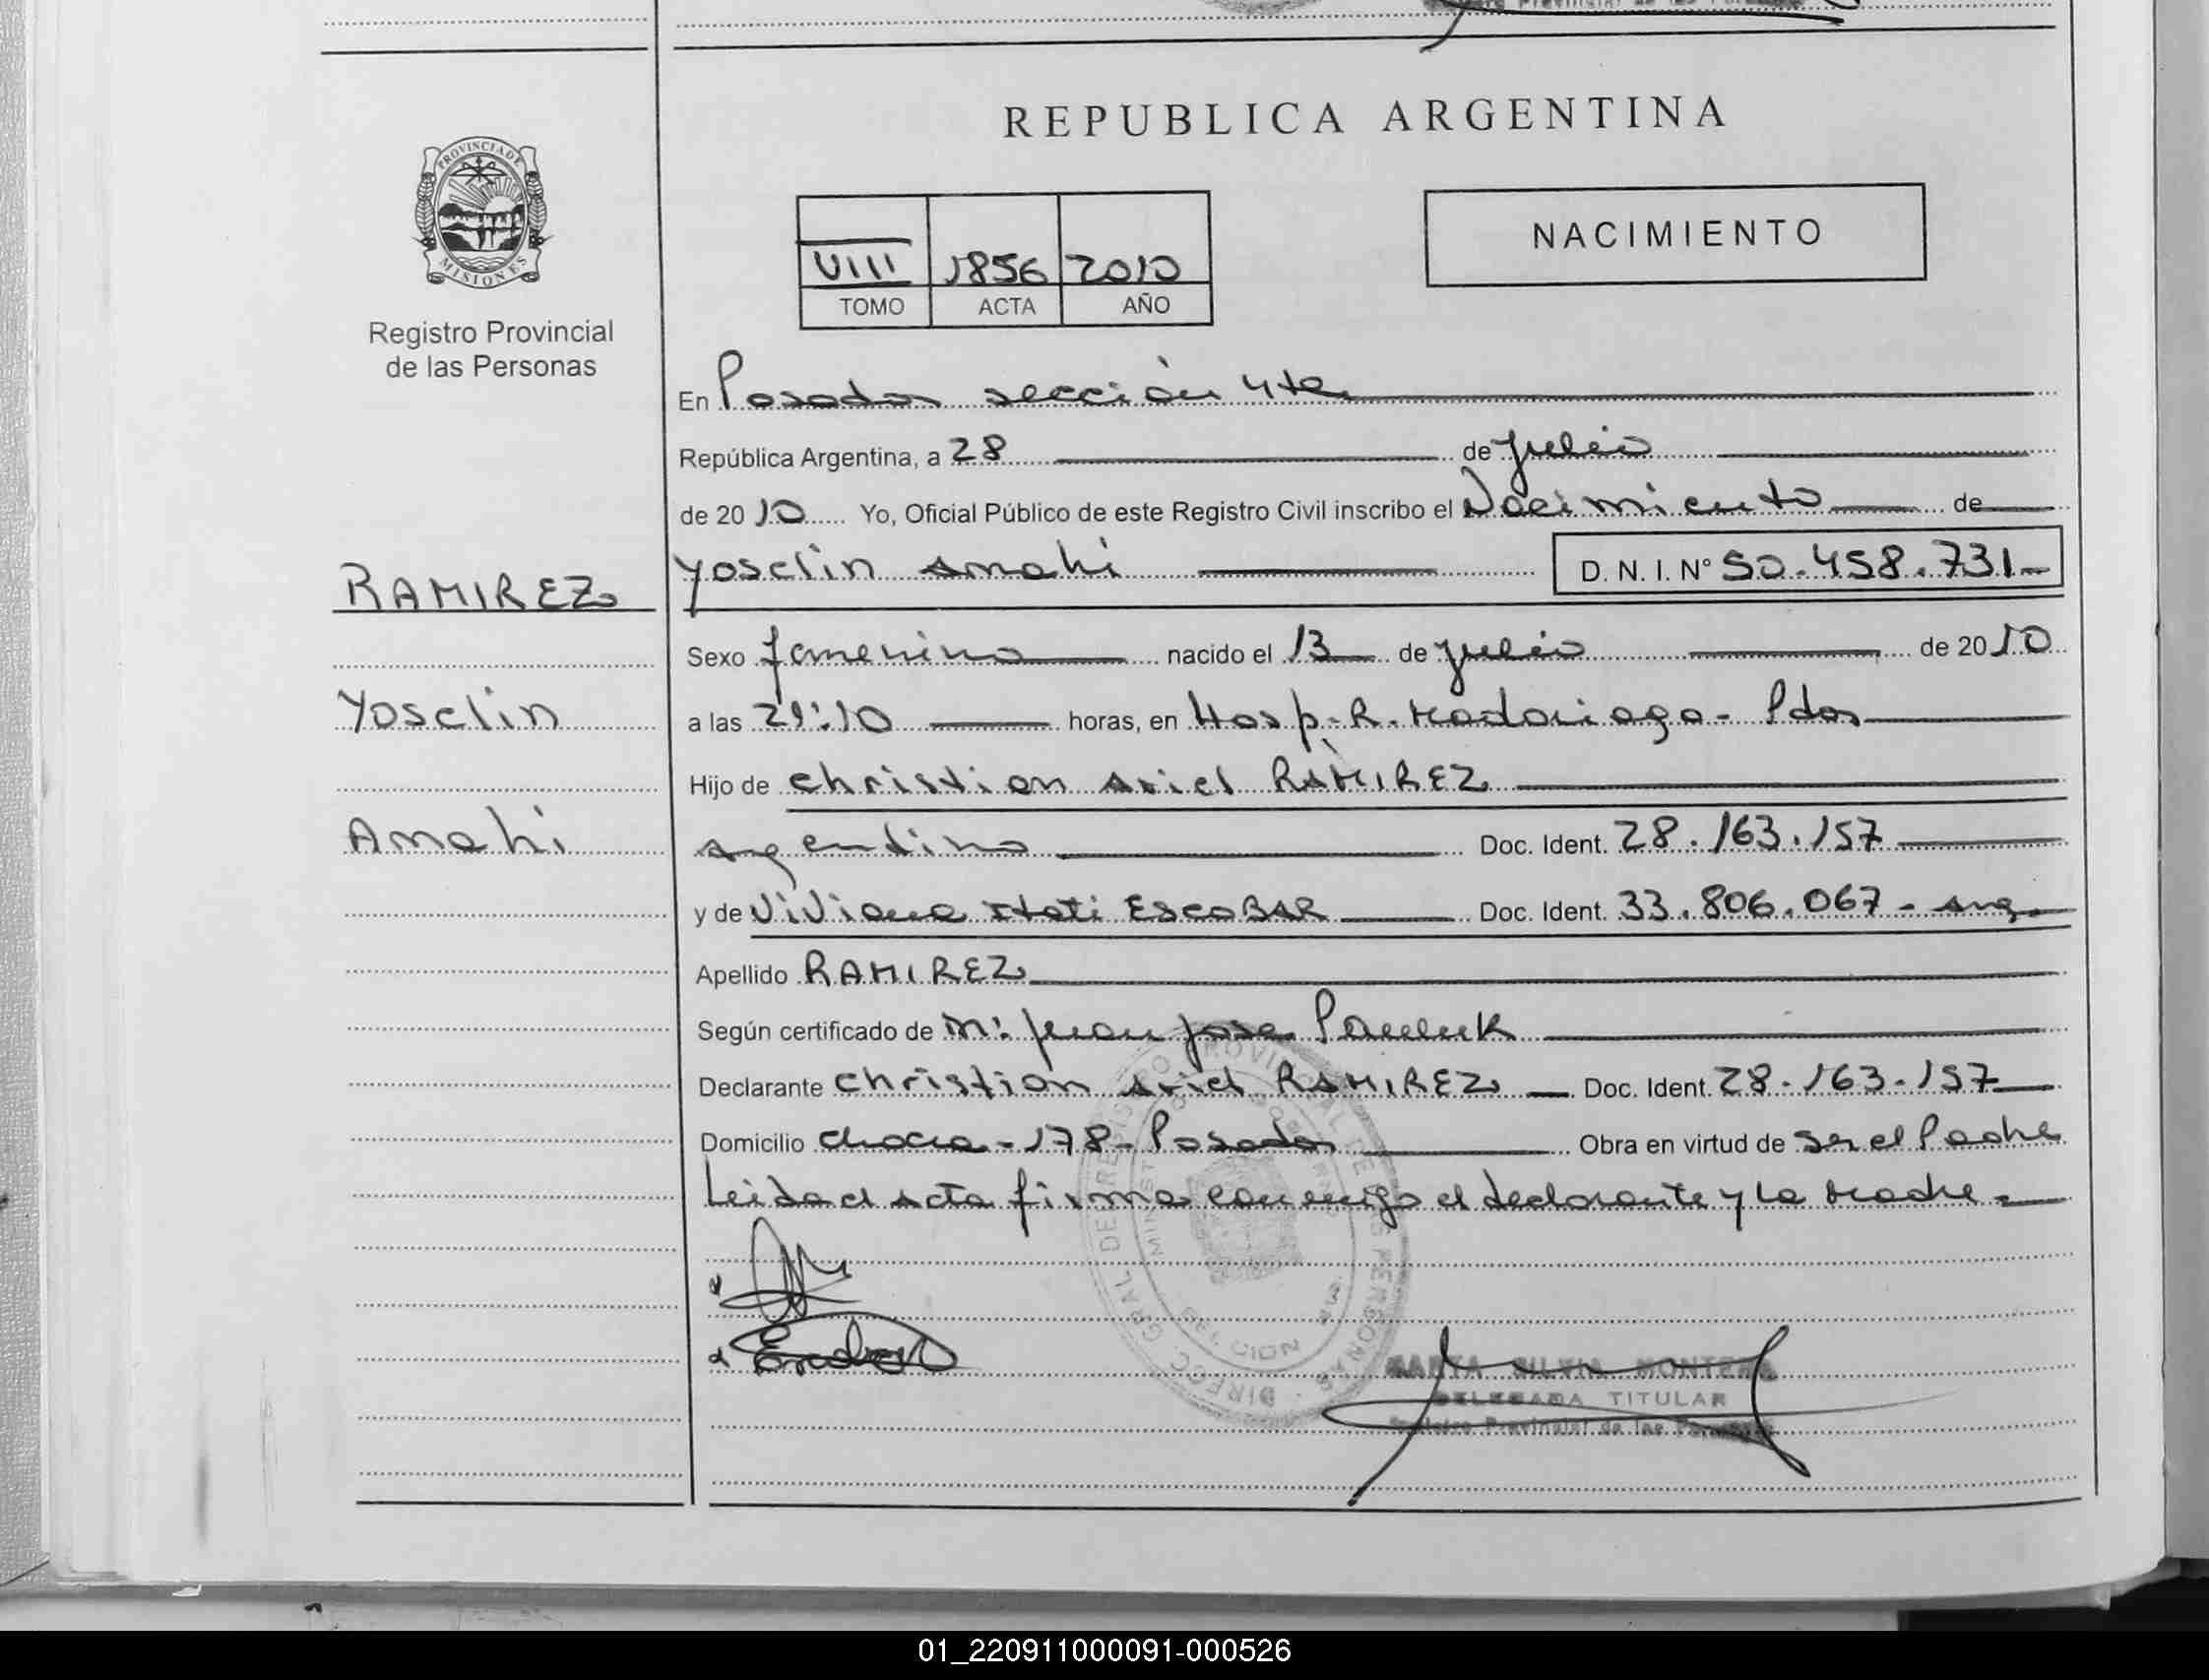 REPUBLICA ARGENTINA
PROVINCIA DE
MISIONES
Registro Provincial
de las Personas
NACIMIENTO
VIII 1856 2010
TOMO ACTA AÑO
En Posadas sección 4ta
República Argentina, a 28 de julio
de 2010 Yo, Oficial Público de este Registro Civil inscribo el Nacimiento de
RAMIREZ
Yoselin Amahi D. N. I. N° 50.458.731-
Sexo femenino nacido el 13 de julio de 2010
Yoselin
a las 21:10 horas, en Hosp. R. Madariaga - Pdas
Hijo de Christian Ariel RAMIREZ
Amahi
Argentino Doc. Ident. 28.163.157
y de Viviana Itati EscoBAR Doc. Ident. 33.806.067 - Arg.
Apellido RAMIREZ
Según certificado de Juan Jose
Declarante Christian Ariel RAMIREZ Doc. Ident. 28-163-157
Domicilio -178- Posadas Obra en virtud de ser el Padre
Leida el acta firma conmigo el declarante y la madre.
SILVIA
DELEGADA TITULAR
Registro Provincial de las Personas
01_220911000091-000526